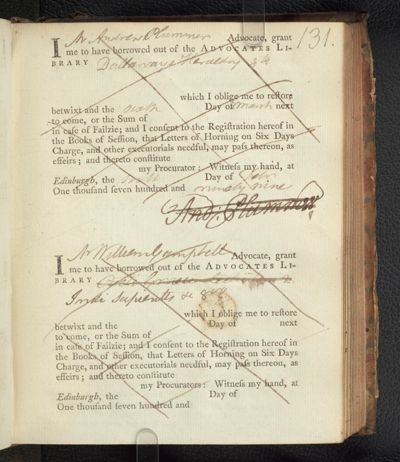 131.
I Mr Andrew Plummer Advocate, grant
me to have borrowed out of the ADVOCATES LI-
BRARY Dallaway's Heraldry 4to
which I oblige me to restore
betwixt and the sixth Day of March next
to come, or the Sum of
in case of Failzie; and I consent to the Registration hereof in
the Books of Session, that Letters of Horning on Six Days
Charge, and other executorials needful, may pass thereon, as
effeirs; and thereto constitute
my Procurator: Witness my hand, at
Edinburgh, the Day of
One thousand seven hundred and ninety nine
And: Plummer
I Mr William Campbell Advocate, grant
me to have borrowed out of the ADVOCATES LI-
BRARY
which I oblige me to restore
betwixt and the Day of next
to come, or the Sum of
in case of Failzie; and I consent to the Registration hereof in
the Books of Session, that Letters of Horning on Six Days
Charge, and other executorials needful, may pass thereon, as
effeirs; and thereto constitute
my Procurators: Witness my hand, at
Edinburgh, the Day of
One thousand seven hundred and